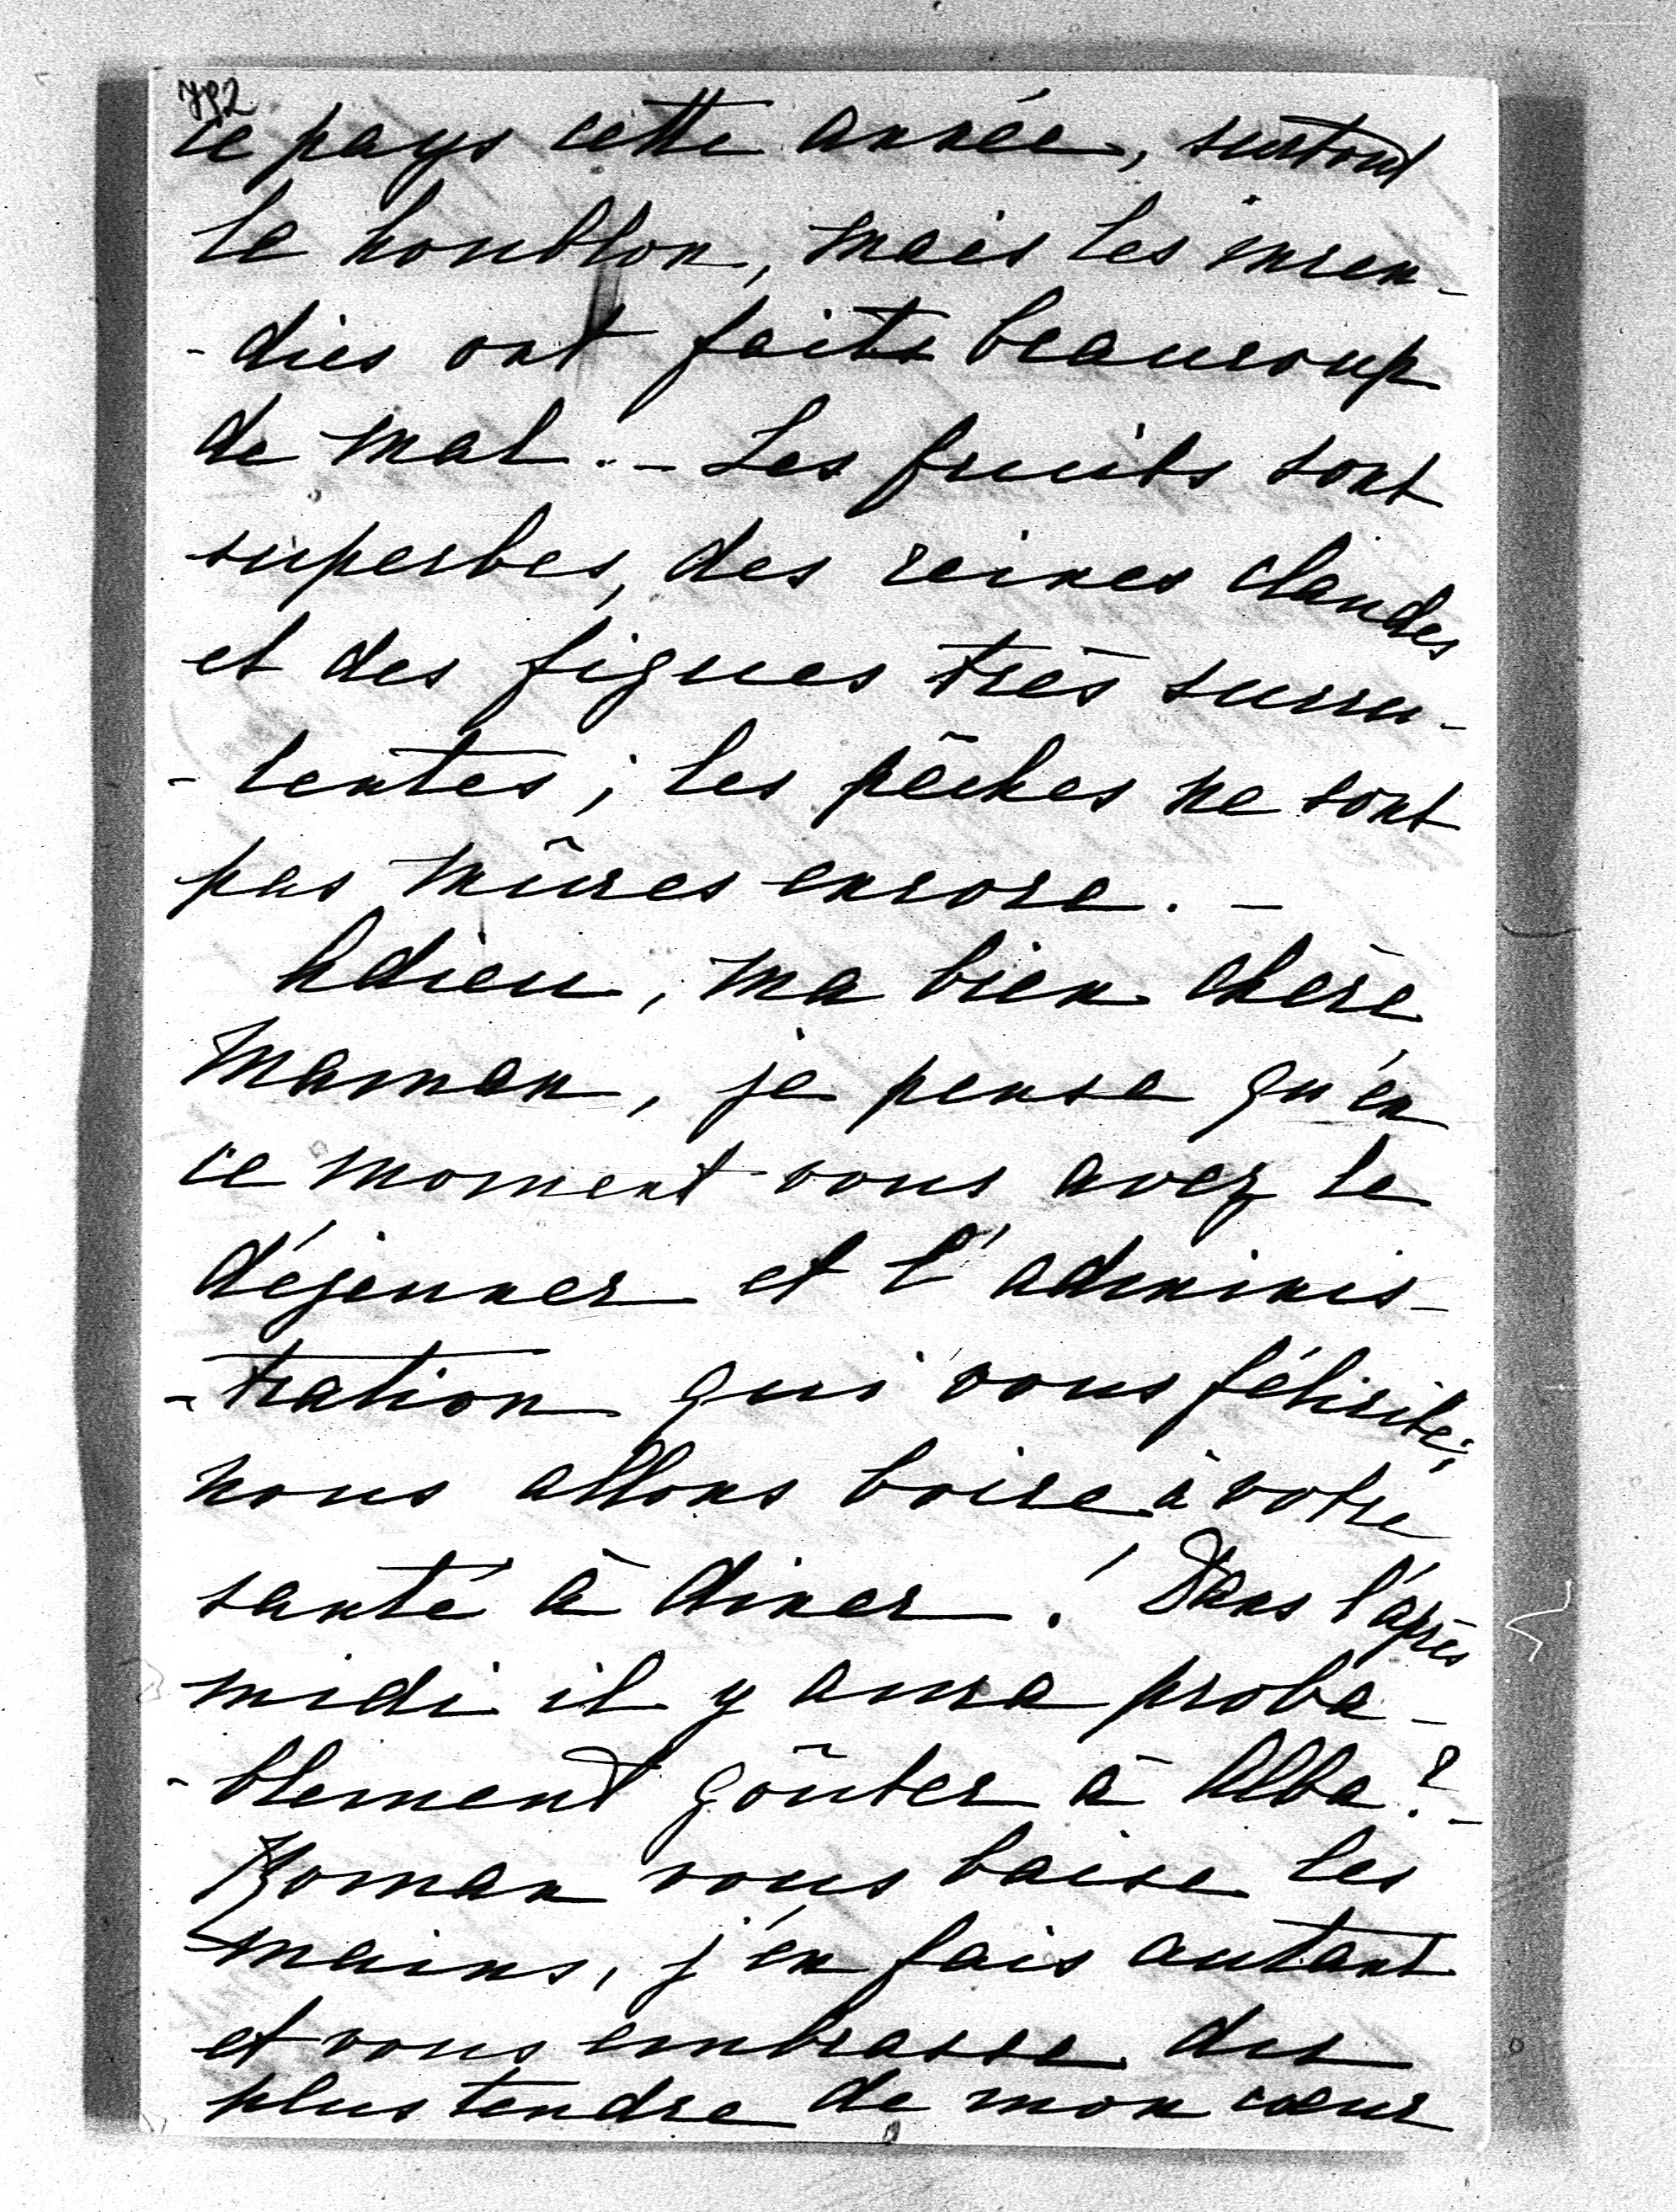 ce pays cette année, surtout
le houblon, mais les incen-
-dies ont faits beaucoup
de mal. - Les fruits sont
superbes, des reines claudes
et des figues très succu-
-lentes; les pêches ne sont
pas mûres encore. -
Adieu, ma bien chère
Maman, je pense qu'en
ce moment vous avez le
déjeuner et l'adminis-
-tration qui vous félicite;
nous allons boire à votre
santé à diner! Dans l'après
midi il y aura proba-
-blement goûter à Alba? -
Roman vous baise les
mains, j'en fais autant
et vous embrasse du
plus tendre de mon cœur